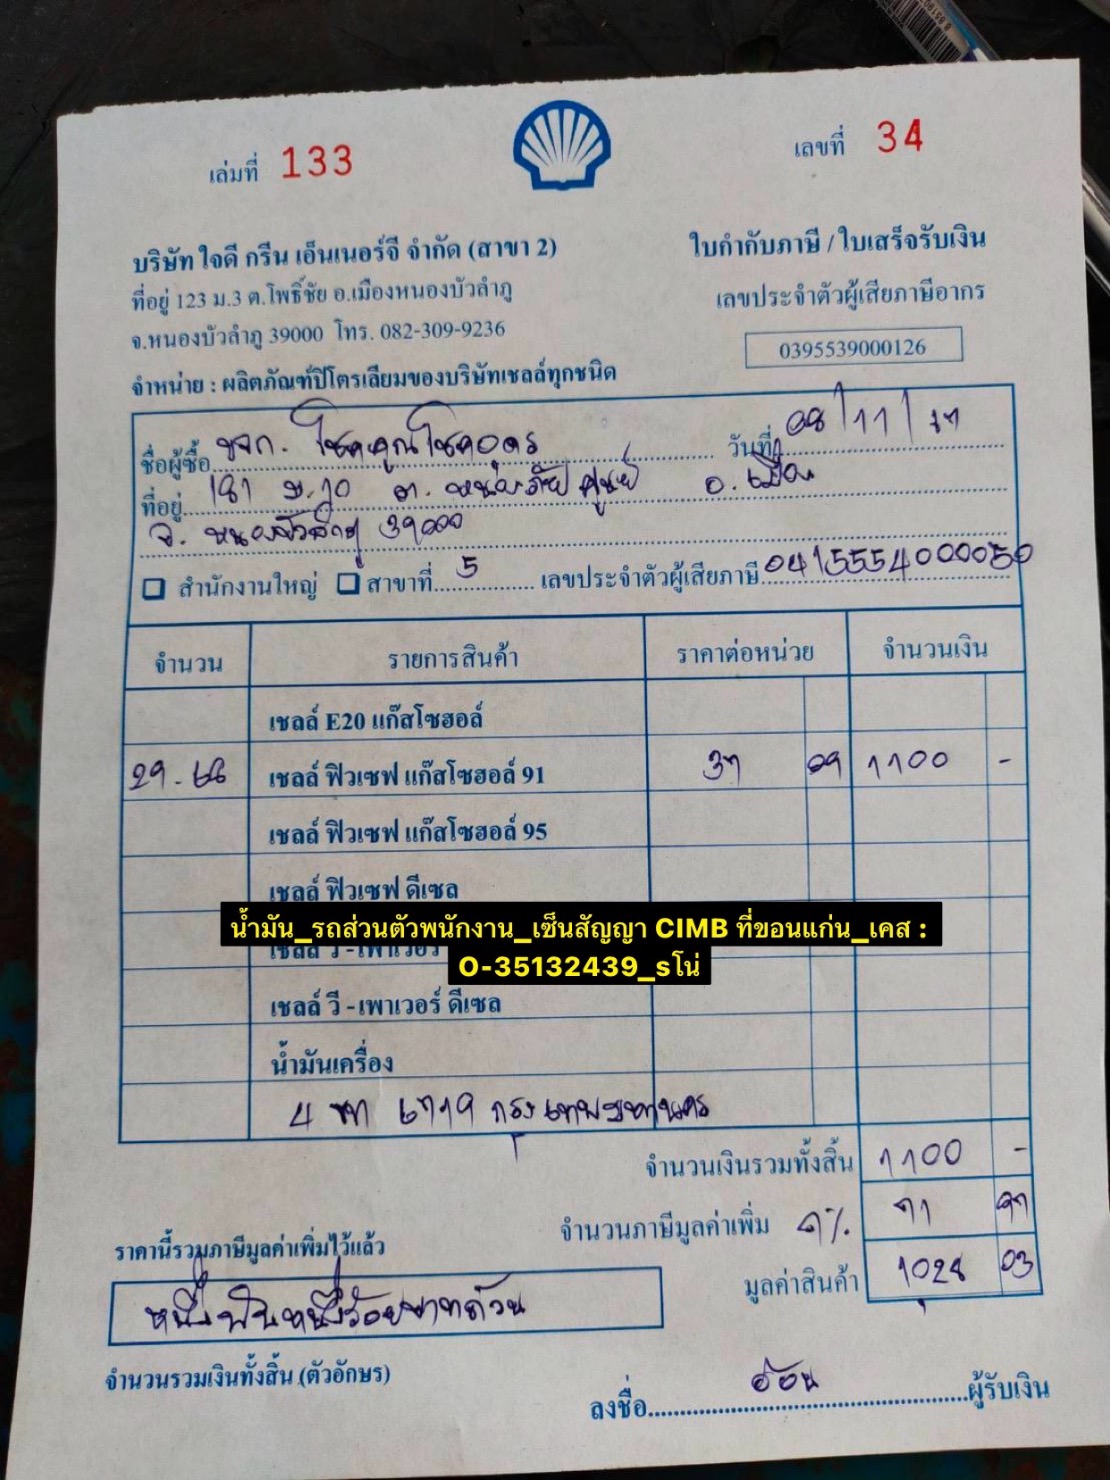 เล่มที่ 133
เลขที่ 34
บริษัท ใจดี กรีน เอ็นเนอร์จี จำกัด (สาขา 2)
ใบกำกับภาษี / ใบเสร็จรับเงิน
ที่อยู่ 123 ม.3 ต.โพธิ์ชัย อ.เมืองหนองบัวลำภู
เลขประจำตัวผู้เสียภาษีอากร
จ.หนองบัวลำภู 39000 โทร. 082-309-9236
0395539000126
จำหน่าย : ผลิตภัณฑ์ปิโตรเลียมของบริษัทเชลล์ทุกชนิด
ชื่อผู้ซื้อ หจก. โชคคูณโชคอุดร วันที่ 08/11/
ที่อยู่ 181 ม.10 ต. อ. เมือง
จ. หนองบัวลำภู 39000
สำนักงานใหญ่ สาขาที่ 5 เลขประจำตัวผู้เสียภาษี 0415554000050
จำนวน รายการสินค้า ราคาต่อหน่วย จำนวนเงิน
เชลล์ E20 แก๊สโซฮอล์
29.66 เชลล์ ฟิวเซฟ แก๊สโซฮอล์ 91 37 09 1100 -
เชลล์ ฟิวเซฟ แก๊สโซฮอล์ 95
เชลล์ ฟิวเซฟ ดีเซล
น้ำมัน_รถส่วนตัวพนักงาน_เซ็นสัญญา CIMB ที่ขอนแก่น_เคส :
O-35132439_sโน่
เชลล์ วี -เพาเวอร์
เชลล์ วี -เพาเวอร์ ดีเซล
น้ำมันเครื่อง
4 ขก 6719 กรุงเทพมหานคร
จำนวนเงินรวมทั้งสิ้น 1100 -
จำนวนภาษีมูลค่าเพิ่ม 7% 71 97
ราคานี้รวมภาษีมูลค่าเพิ่มไว้แล้ว
มูลค่าสินค้า 1028 03
หนึ่งพันหนึ่งร้อยบาทถ้วน
จำนวนรวมเงินทั้งสิ้น (ตัวอักษร)
ลงชื่อ อ้อน ผู้รับเงิน